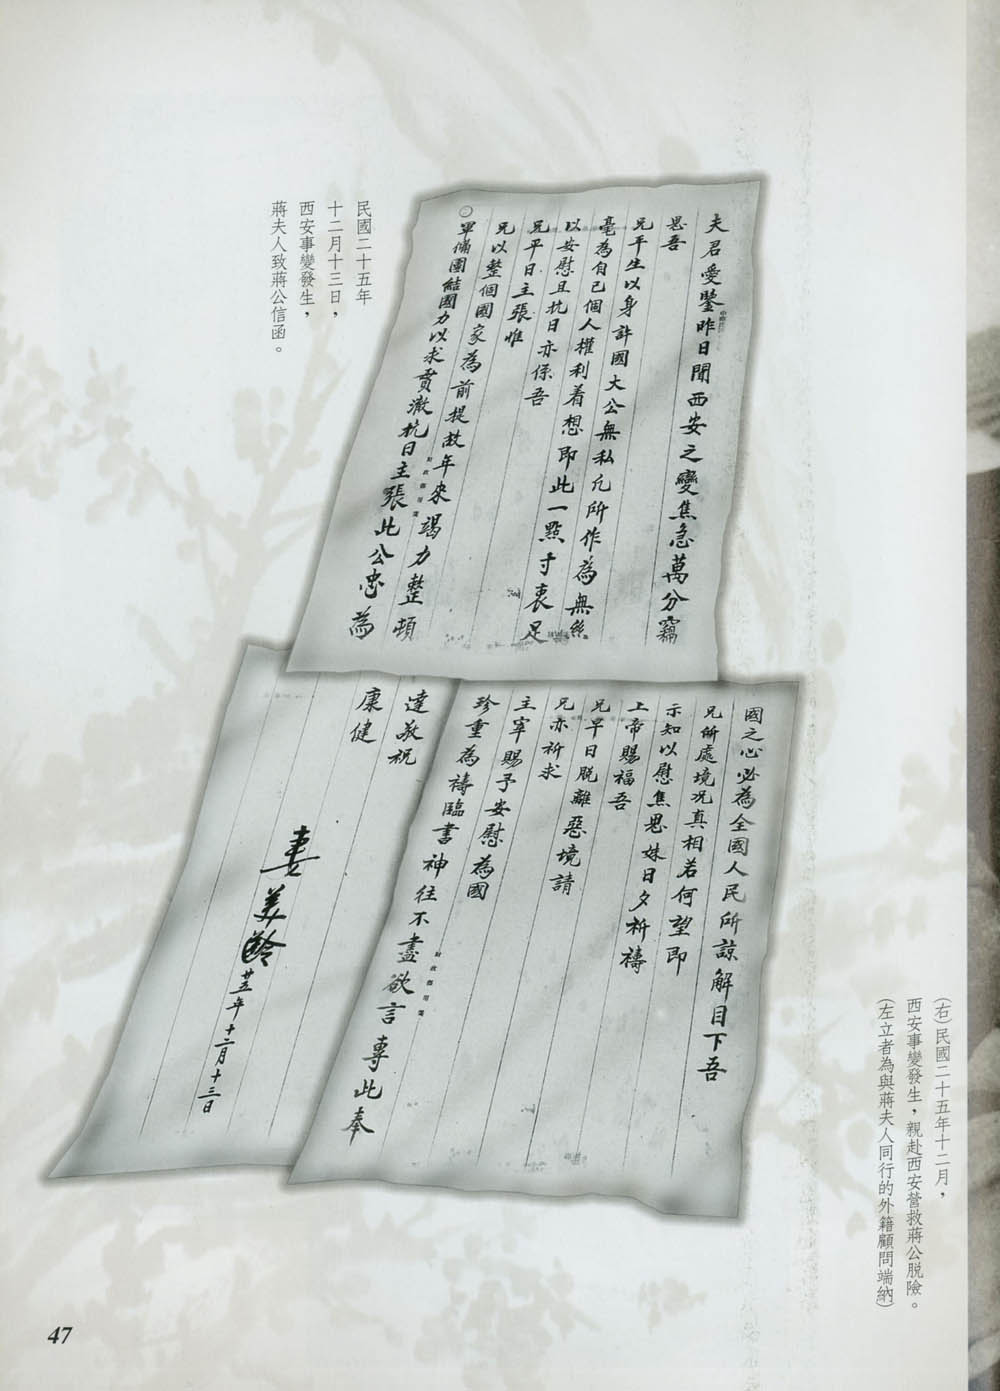 夫君愛鑒昨日聞西安之變焦急萬分竊
思吾
兄平生以身許國大公無私凡所作為無絲
毫為自己個人權利着想即此一點寸衷足
以安慰且抗日亦係吾
兄平日主張惟
兄以整個國家為前提故年來竭力整頓
軍備團結國力以求貫澈抗日主張此公忠為
國之心必為全國人民所諒解目下吾
兄所處境況真相若何望即
示知以慰焦思妹日夕祈禱
上帝賜福吾
兄早日脫離惡境請
兄亦祈求
主宰賜予安慰為國
珍重為禱臨書神往不盡欲言專此奉
達敬祝
康健
妻美齡廿五年十二月十三日
民國二十五年
十二月十三日，
西安事變發生，
蔣夫人致蔣公信函。
(右)民國二十五年十二月，
西安事變發生，親赴西安營救蔣公脫險。
(左立者為與蔣夫人同行的外籍顧問端納)
47